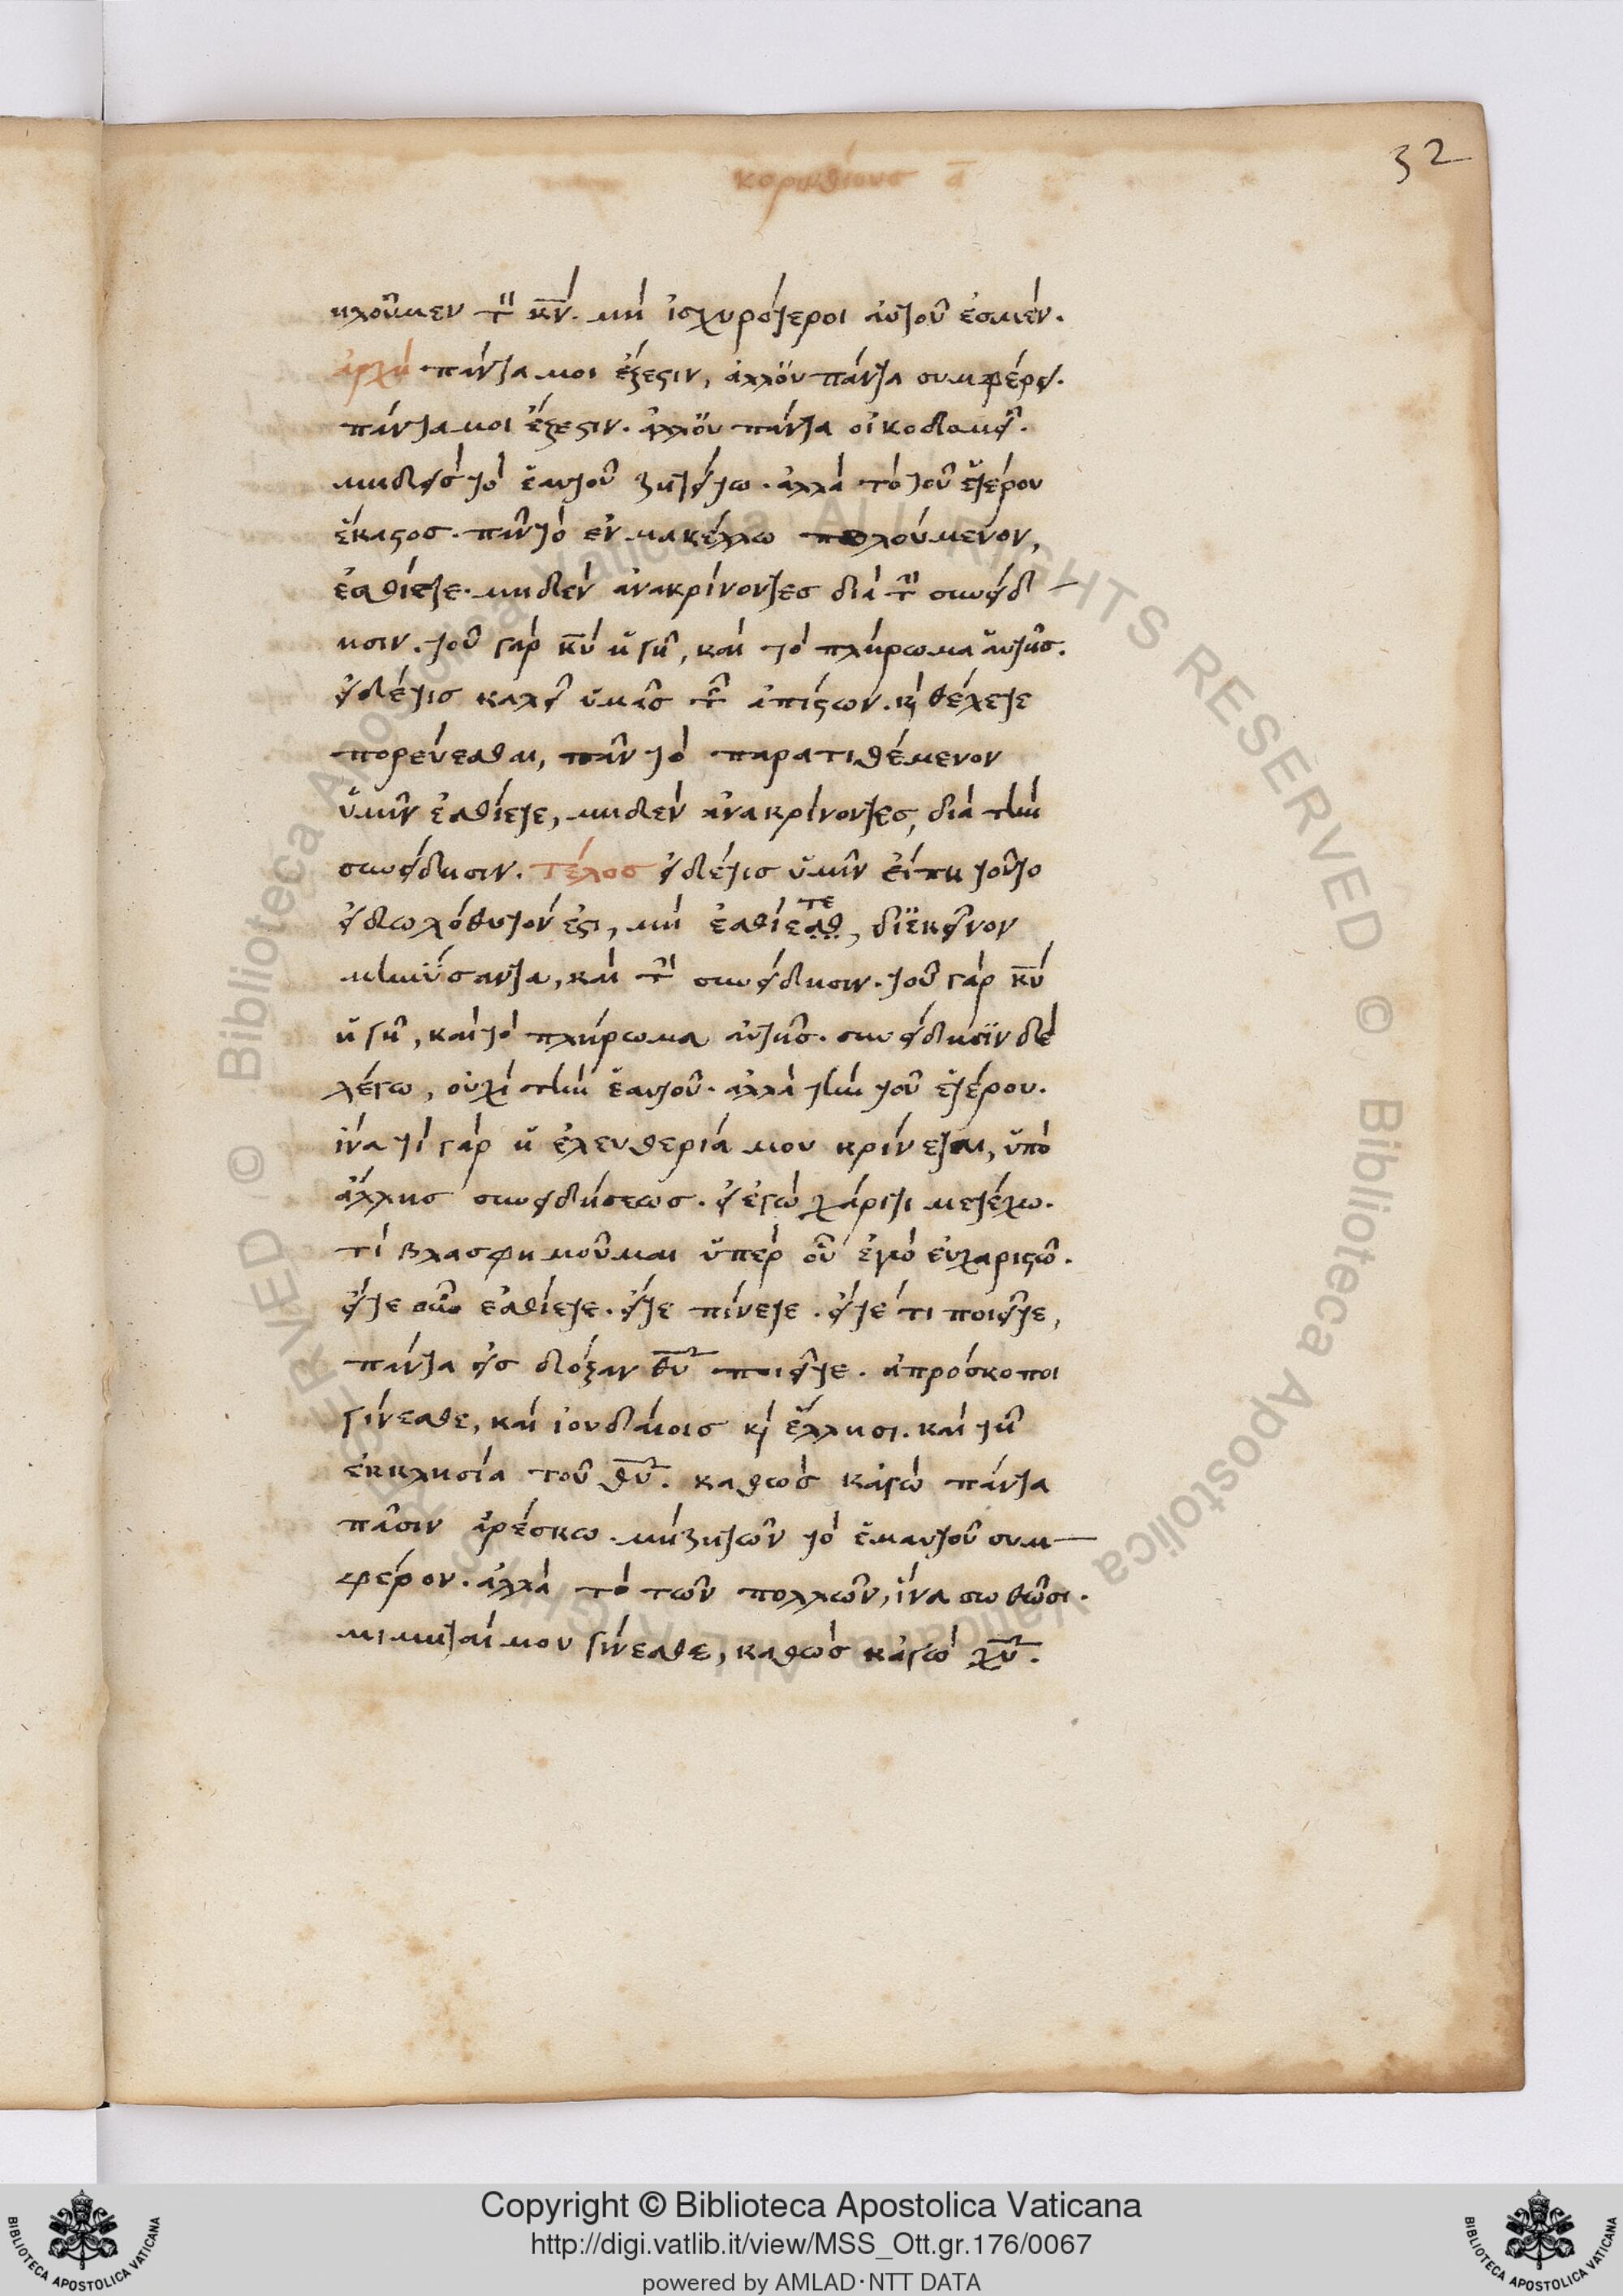 32
κορινθίους α̅
ηλοῦμεν τ̀ κ̅ν̅. μὴ ἰσχυρότεροι αὐτοῦ ἐσμέν.
ἀρχὴ πάντα μοι ἔξεστιν, ἀλλ' οὐ πάντα συμφέρει.
πάντα μοι ἔξεστιν. ἀλλ' οὐ πάντα οἰκοδομεῖ.
μηδεὶς τὸ ἑαυτοῦ ζητείτω. ἀλλὰ τὸ τοῦ ἑτέρου
ἕκαστος. πᾶν τὸ ἐν μακέλλω πολούμενον,
ἐσθίετε. μηδὲν ἀνακρίνοντες διὰ τ̀ συνείδ
ησιν. τοῦ γὰρ κ̅υ̅ ἡ γῆ, καὶ τὸ πλήρωμα αὐτῆς.
εἰ δέ τις καλεῖ ὑμᾶς τ̃ ἀπίστων. κ̀ θέλετε
πορεύεσθαι, πᾶν τὸ παρατιθέμενον
ὑμῖν ἐσθίετε, μηδὲν ἀνακρίνοντες, διὰ τὴν
συνείδησιν. τέλος εἰ δέ τις ὑμῖν εἴπη τοῦτο
εἰδωλόθυτόν ἐστι, μὴ ἐσθίεσθτε, δι' ἐκεῖνον
μηνύσαντα, καὶ τ̀ συνείδησιν. τοῦ γὰρ κ̅υ̅
ἡ γῆ, καὶ τὸ πλήρωμα αὐτῆς. συνείδησιν δὲ
λέγω, οὐχὶ τὴν ἑαυτοῦ. ἀλλὰ τὴν τοῦ ἑτέρου.
ἵνα τί γὰρ ἡ ἐλευθερία μου κρίνεται, ὑπὸ
ἄλλης συνειδήσεως. εἰ ἐγὼ χάριτι μετέχω.
τί βλασφημοῦμαι ὑπὲρ οὗ ἐγὼ εὐχαριστῶ.
εἴτε οὖν ἐσθίετε. εἴτε πίνετε. εἴτέ τι ποιεῖτε,
πάντα εἰς δόξαν θ̅υ̅ ποιεῖτε. ἀπρόσκοποι
γίνεσθε, καὶ ἰουδαίοις κ̀ ἕλλησι. καὶ τῆ
ἐκκλησία τοῦ θ̅υ̅. καθὼς κἀγὼ πάντα
πᾶσιν ἀρέσκω. μὴ ζητῶν τὸ ἐμαυτοῦ συμ
φέρον. ἀλλὰ τὸ τῶν πολλῶν, ἵνα σωθῶσι.
μιμηταί μου γίνεσθε, καθὼς κἀγὼ χ̅υ̅.
Copyright © Biblioteca Apostolica Vaticana
http://digi.vatlib.it/view/MSS_Ott.gr.176/0067
powered by AMLAD·NTT DATA